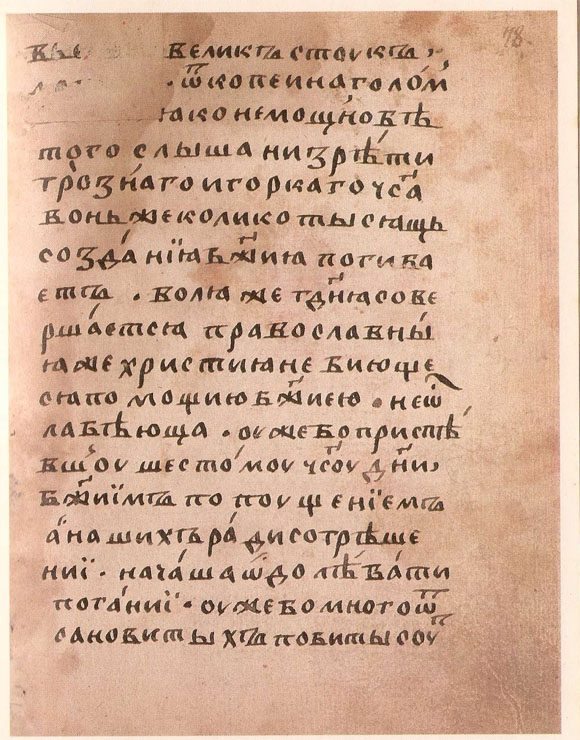 великъ стоукъ,
· ѿ копеи на голом
ꙗко не мощно бѣ
того слышани зрѣти
грознаго и горкаго чса
вонь же колико тысꙗщь
созданїꙗ бжиꙗ погиба
етъ · волꙗ же гднꙗ сове
ршаетсꙗ православны
ꙗ же христиꙗне биюще
сꙗ помощию бжиею · не ѿ
лабѣюща · оуже бо приспѣ
вшоу шестомоу чсоу дни,
бжиїмъ попоущенїемъ
а нашихъ ради согрѣше
ниї · начаша ѡдолѣвати
поганиї · оуже бо много ѿ
сановитыхъ побиты соу